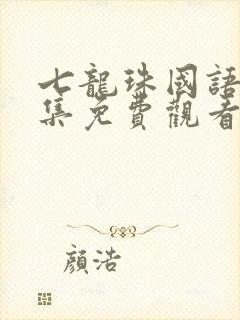 七龍珠國語
集免費觀看
顏浩